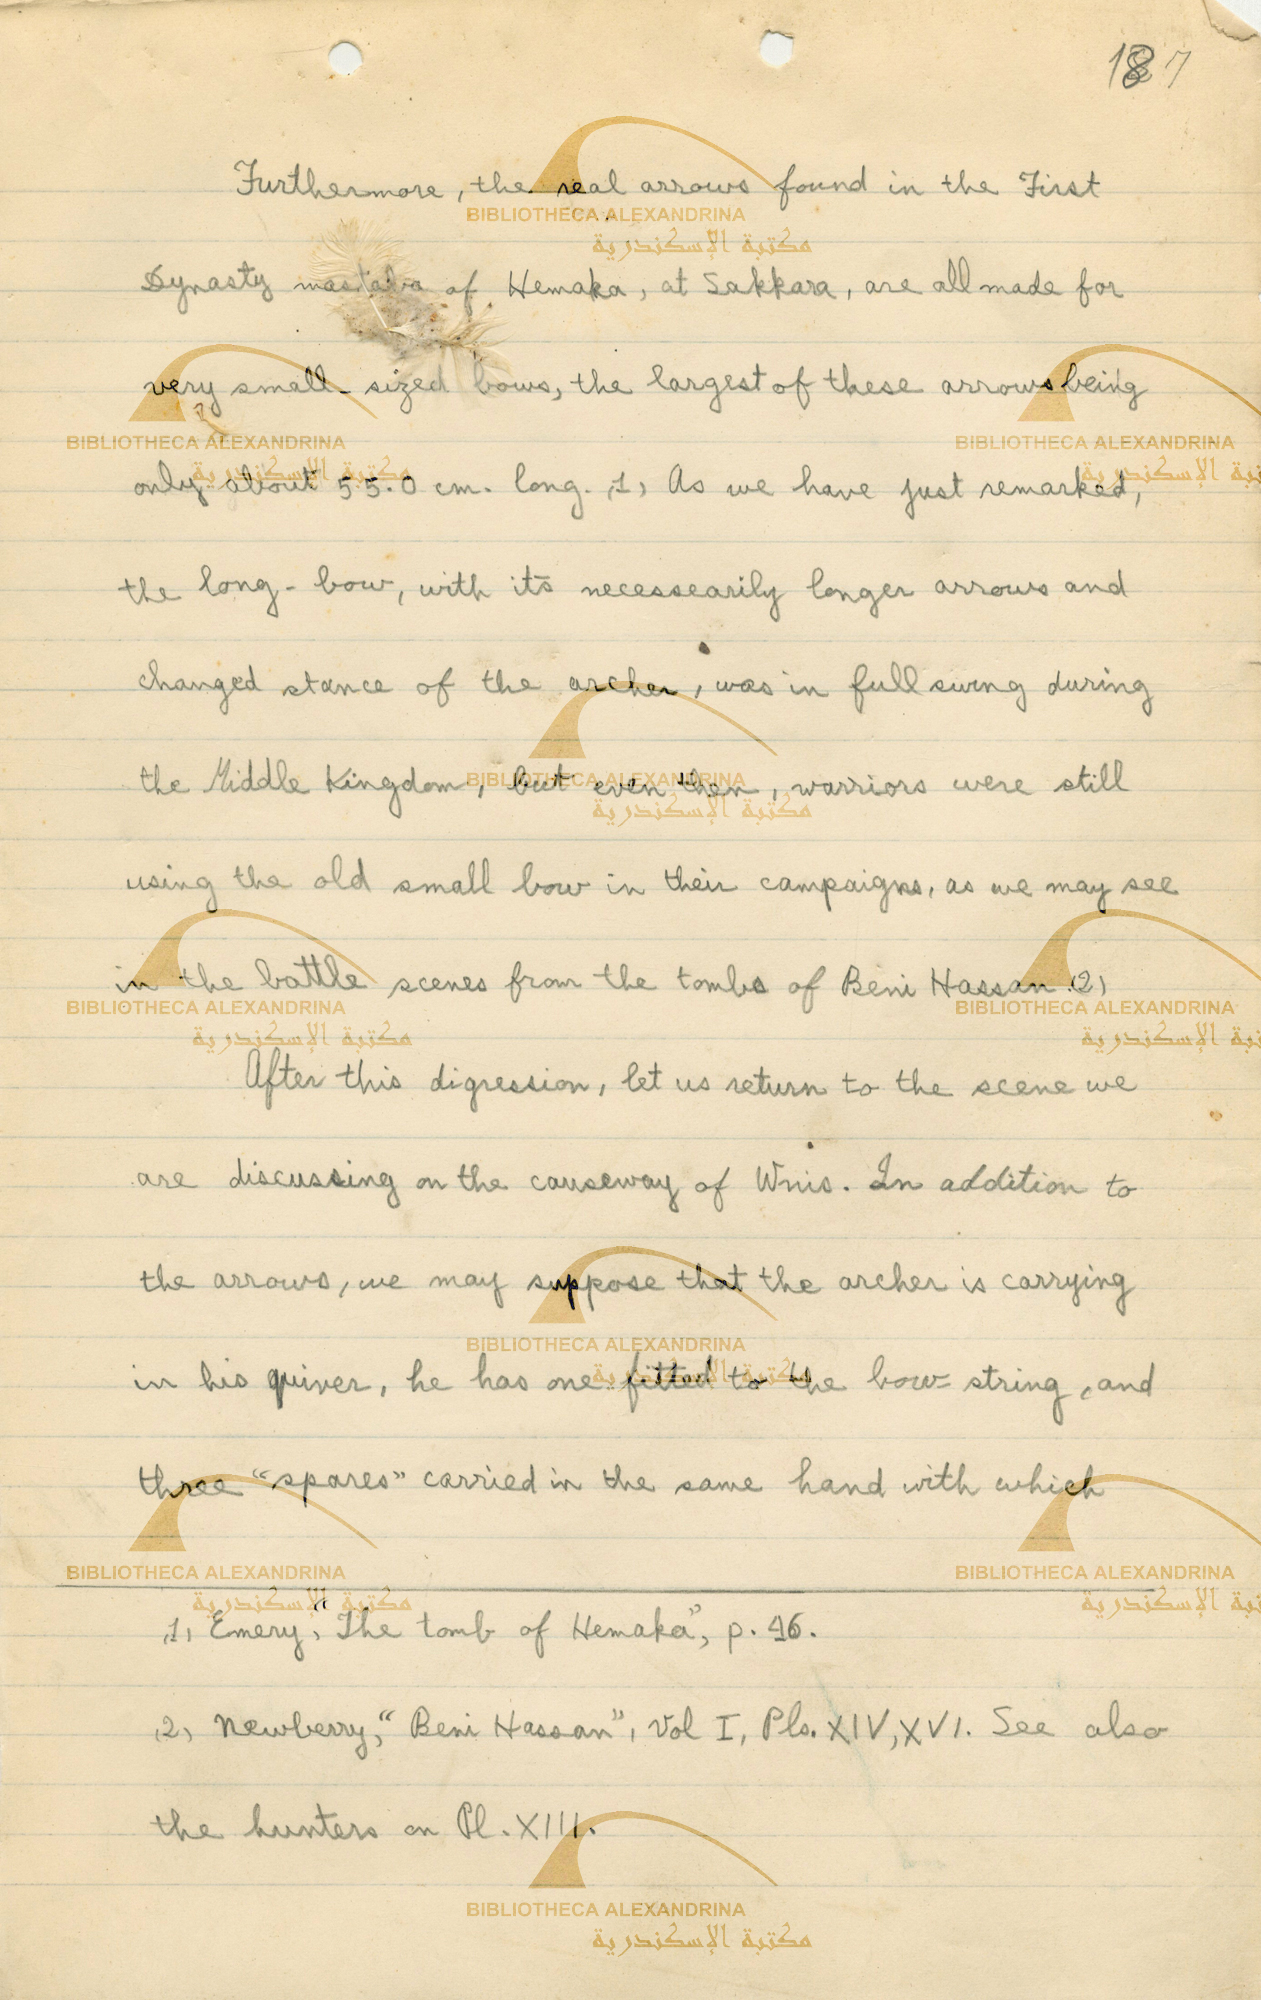 187
Furthermore, the real arrows found in the First
Dynasty mastaba of Hemaka, at Sakkara, are all made for
very small-sized bows, the largest of these arrows being
only about 55.0 cm. long. (1) As we have just remarked,
the long-bow, with its necessearily longer arrows and
changed stance of the archer, was in full swing during
the Middle Kingdom, but even then, warriors were still
using the old small bow in their campaigns, as we may see
in the battle scenes from the tombs of Beni Hassan.(2)
After this digression, let us return to the scene we
are discussing on the causeway of Wnis. In addition to
the arrows, we may suppose that the archer is carrying
in his quiver, he has one fitted to the bow-string, and
three "spares" carried in the same hand with which
(1) Emery, "The tomb of Hemaka", p. 46.
(2) Newberry, "Beni Hassan", Vol I, Pls. XIV, XVI. See also
the hunters on Pl. XIII.
BIBLIOTHECA ALEXANDRINA
مكتبة الإسكندرية